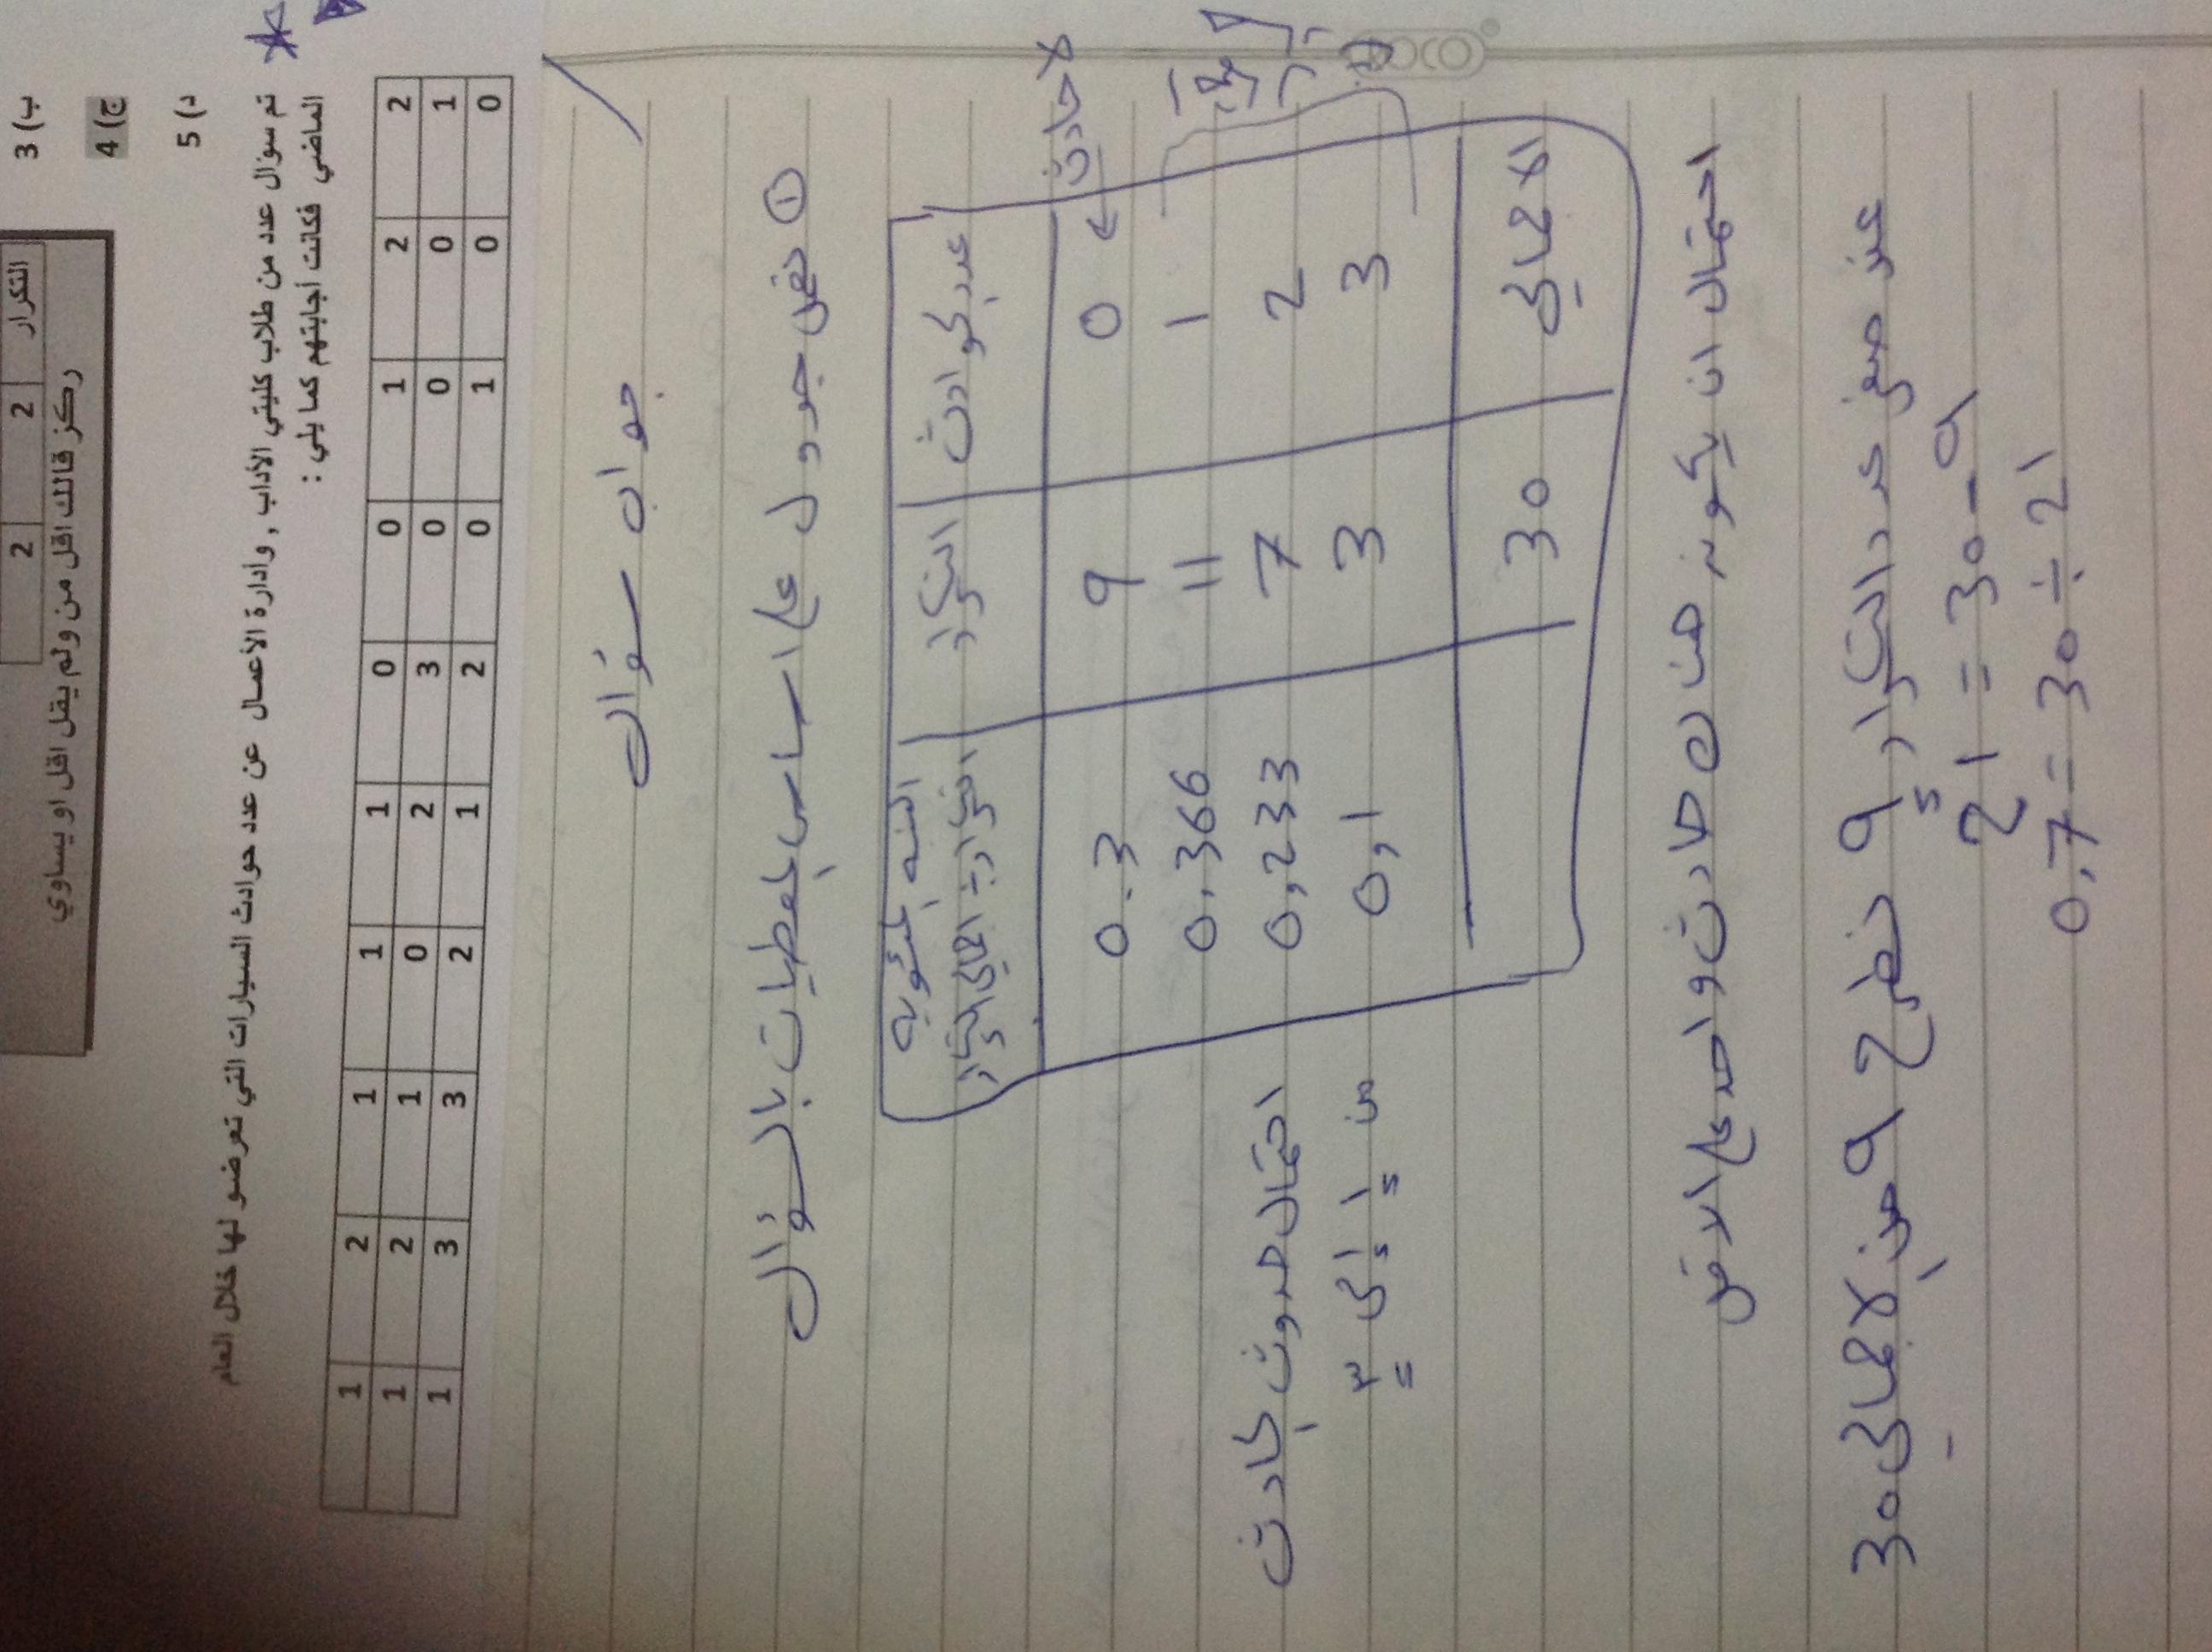 ب) 3
ج) 4
د) 5
التكرار 2 2
ركز قالك اقل من ولم يقل اقل او يساوي
تم سؤال عدد من طلاب كليتي الأداب , وأدارة الأعمال عن عدد حوادث السيارات التي تعرضو لها خلال العام
الماضي فكانت أجابتهم كما يلي :
2 2 1 0 0 1 1 1 2 1
1 0 0 0 3 2 0 1 2 1
0 0 1 0 2 1 2 3 3 1
جواب سؤال
① نفس جدول على اساس المعطيات بالسؤال
عدد الحوادث التكرار النسبه المئويه
التكرار ÷ اجمالي التكرار
لا حادث
0 9 0.3
1 11 0.366
2 7 0,233
3 3 0,1
الاجمالي 30
احتمال حدوث الحادث
من 1 إلى ٣
احتمال ان يكون هناك حادث واحد على الاقل
عند صفر عدد التكرار 9 نطرح 9 من الاجمالي 30
21 = 30 - 9
0,7 = 30 ÷ 21